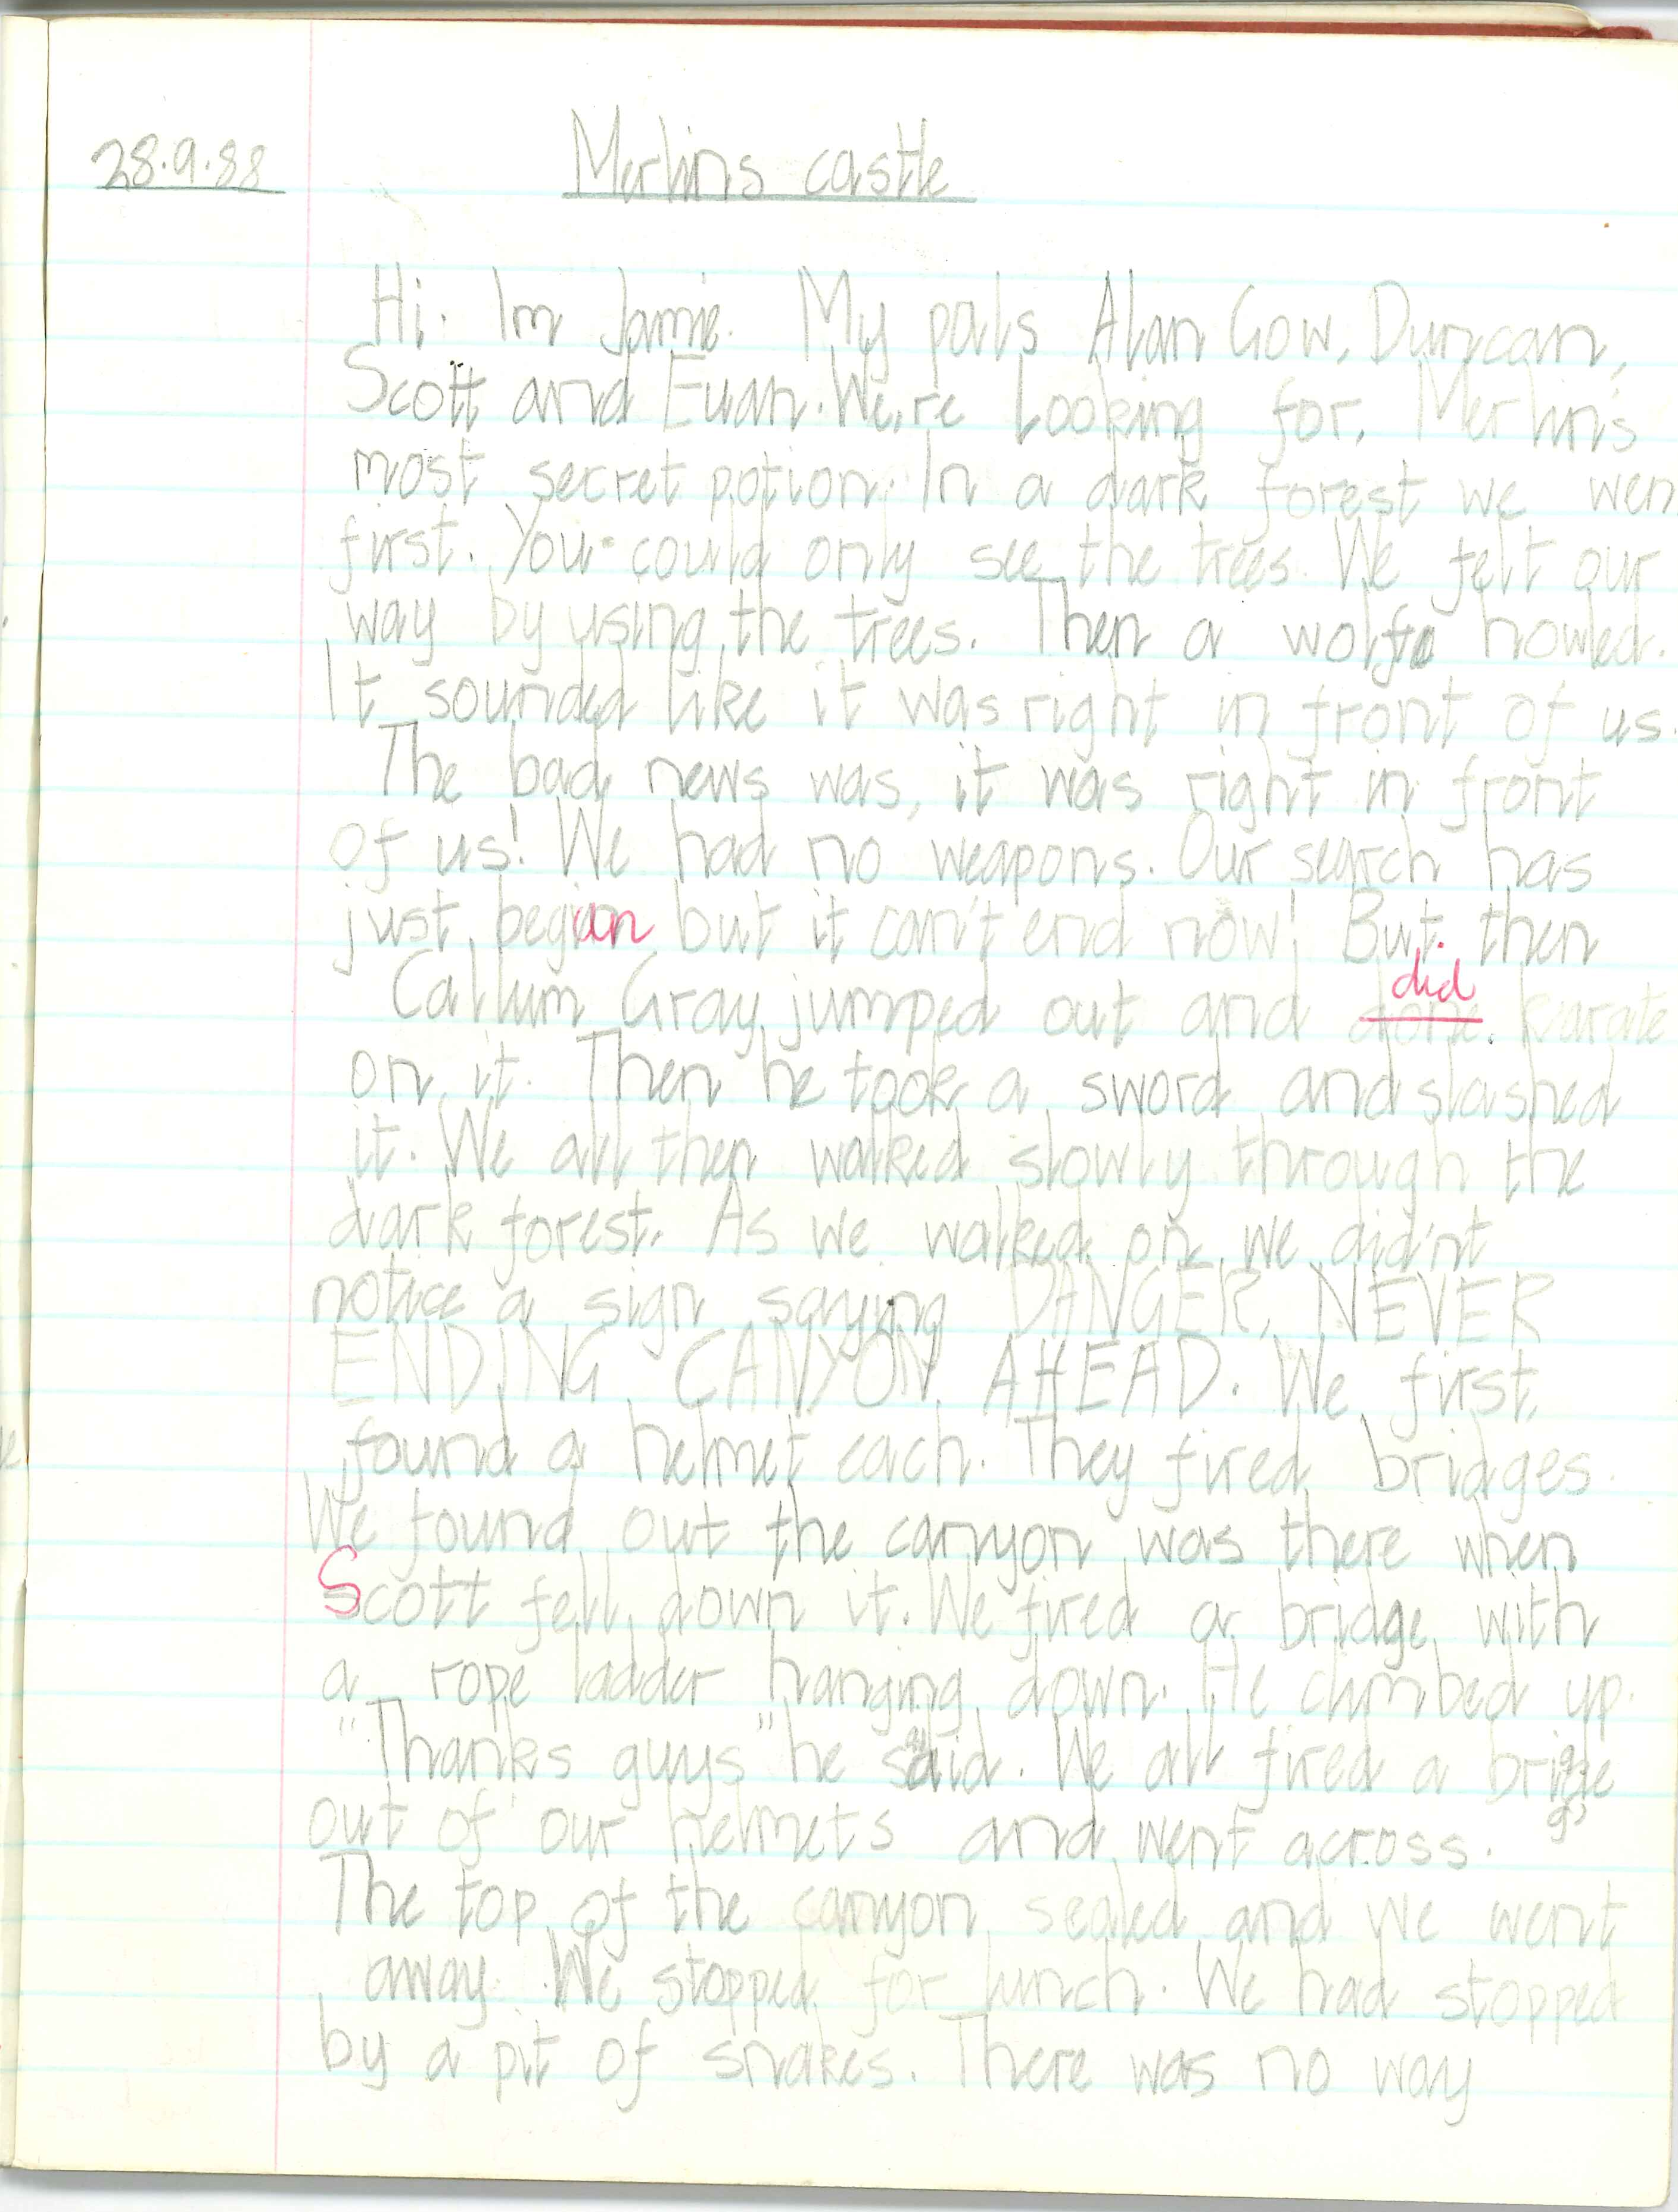 28.9.88 Merlins castle
Hi. Im Jamie. My pals Alan Gow, Duncan,
Scott and Euan. We,re Looking for, Merlin's
most secret potion. In a dark forest we wen
first. You could only see the trees. We felt our
way by using the trees. Then a wolf howled.
It sounded like it was right in front of us.
The bad news was, it was right in front
of us! We had no weapons. Our search has
just began but it can't end now! But then
did
Callum Gray jumped out and done karate
on it. Then he took a sword and slashed
it. We all then walked slowly through the
dark forest. As we walked on we did'nt
notice a sign saying DANGER, NEVER
ENDING CANYON AHEAD. We first
found a helmet each. They fired bridges.
We found out the canyon was there when
Scott fell down it. We fired a bridge with
a rope ladder hanging down. He climbed up.
"Thanks guys" he said. We all fired a bridge
out of our helmets and went across.
The top of the canyon sealed and we went
away. We stopped for lunch. We had stopped
by a pit of snakes. There was no way